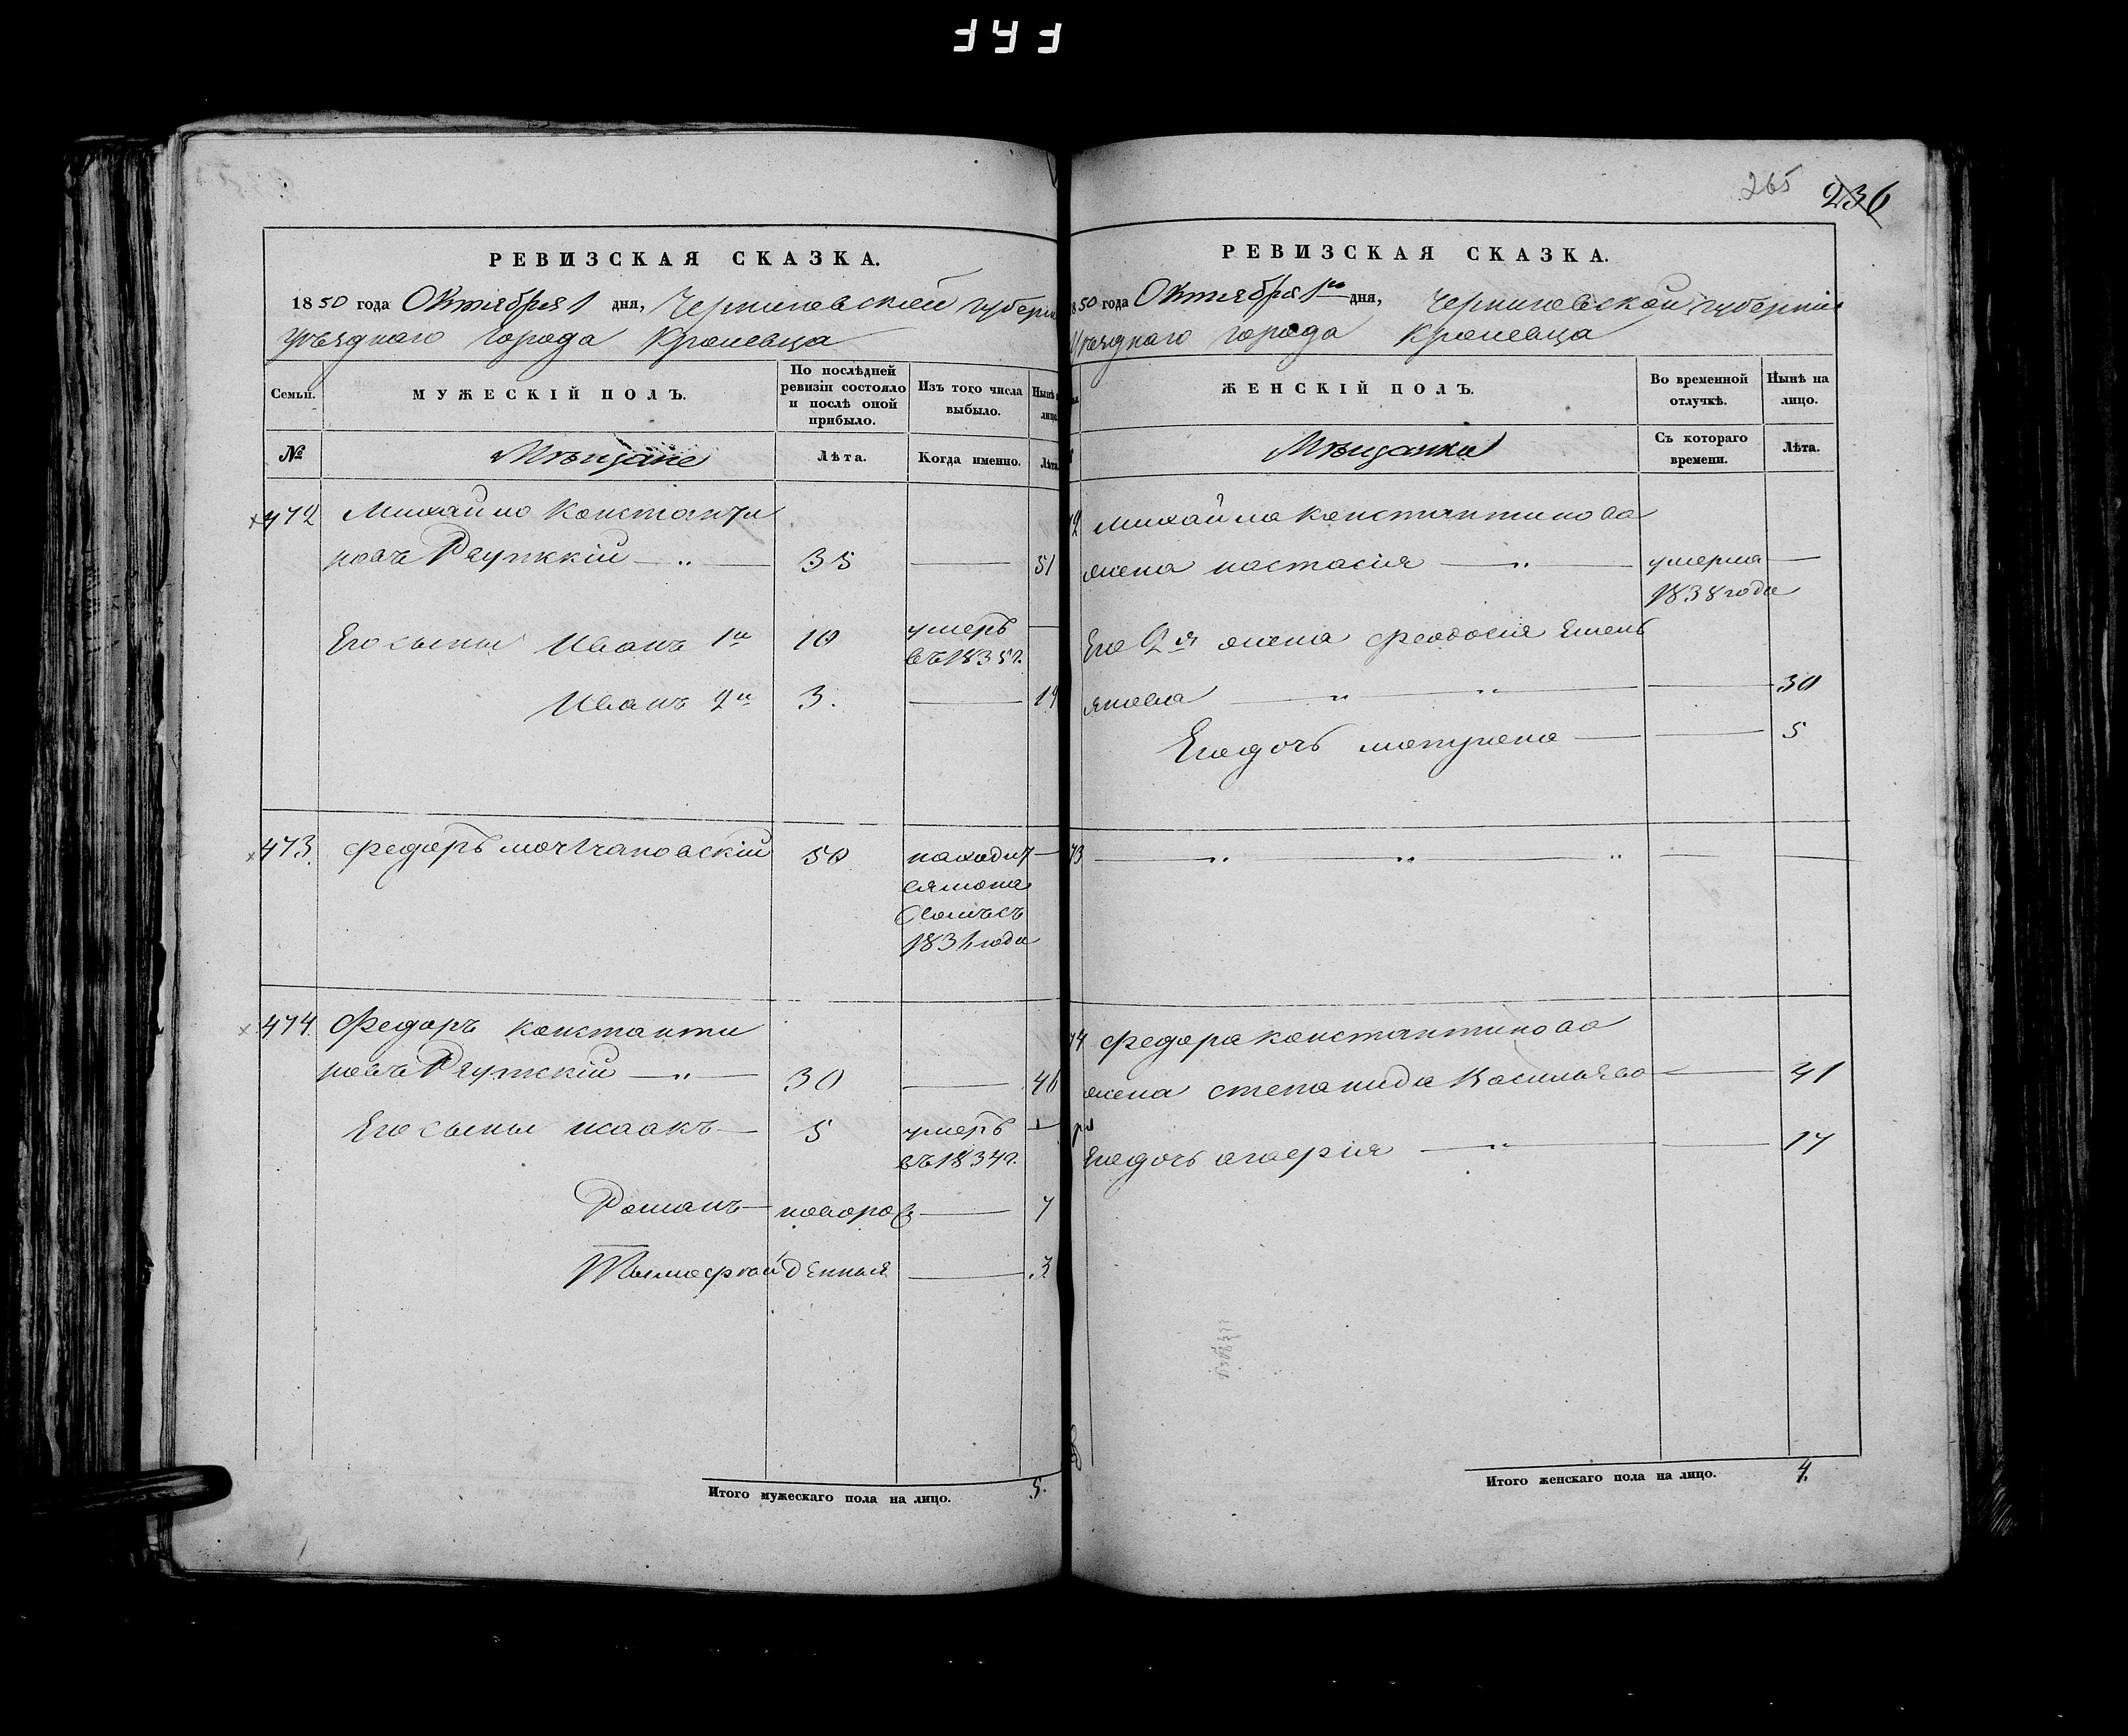 265 236
РЕВИЗСКАЯ СКАЗКА.
1850 года Октября 1 дня, Черниговской губерн
уѣзднаго города Кролевца
Семьи.
МУЖЕСКІЙ ПОЛЪ.
По послѣдней
ревизіи состояло
и послѣ оной
прибыло.
Изъ того числа
выбыло.
Нынѣ н
лицо.
№
Мѣщане
Лѣта.
Когда именно.
Лѣта.
472 Михайло Константи
новъ Реутскій 35 — 51
Его сыны Иванъ 1й 10 умеръ —
въ 1835г.
Иванъ 2й 3. — 19
473. Федоръ 50 находит —
ся
1831 года
474. Федоръ Константи
новъ Реутскій 30 — 46
Его сыны Исаакъ 5 умеръ —
въ 1834г.
Романъ новоро — 7
Тимофей жденныя — 3
Итого мужескаго пола на лицо. 5.
РЕВИЗСКАЯ СКАЗКА.
1850 года Октября 1го дня, Черниговской губерніи
Уѣзднаго города Кролевца
ЖЕНСКІЙ ПОЛЪ.
Во временной
отлучкѣ.
Нынѣ на
лицо.
Мѣщанки
Съ котораго
времени.
Лѣта.
72 Михайла Константинова
жена Настасія умерла —
1838 года
Его 2я жена Феодосія Емель
янова — 30
Его дочь Матрона — 5
73 — — —
74 Федора Константинова
жена Степанида Васильева — 41
Его дочь — 17
Итого женскаго пола на лицо. 4.